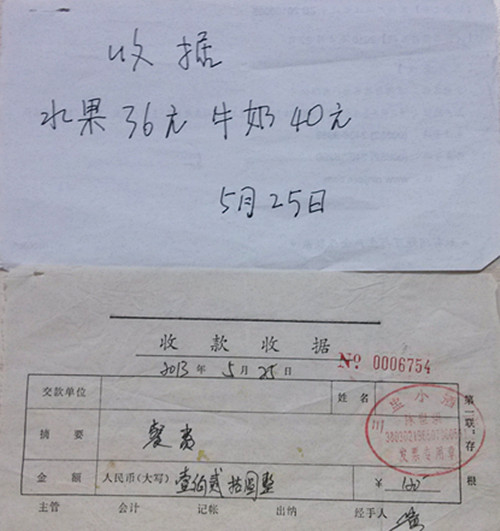 收据
水果 36元 牛奶 40元
5月25日
收款收据
№ 0006754
2013年5月25日
交款单位
姓名
摘要
餐费
金额 人民币(大写) 壹佰贰拾圆整 ¥
第一联:存根
发票专用章
主管 会计 记帐 出纳 经手人